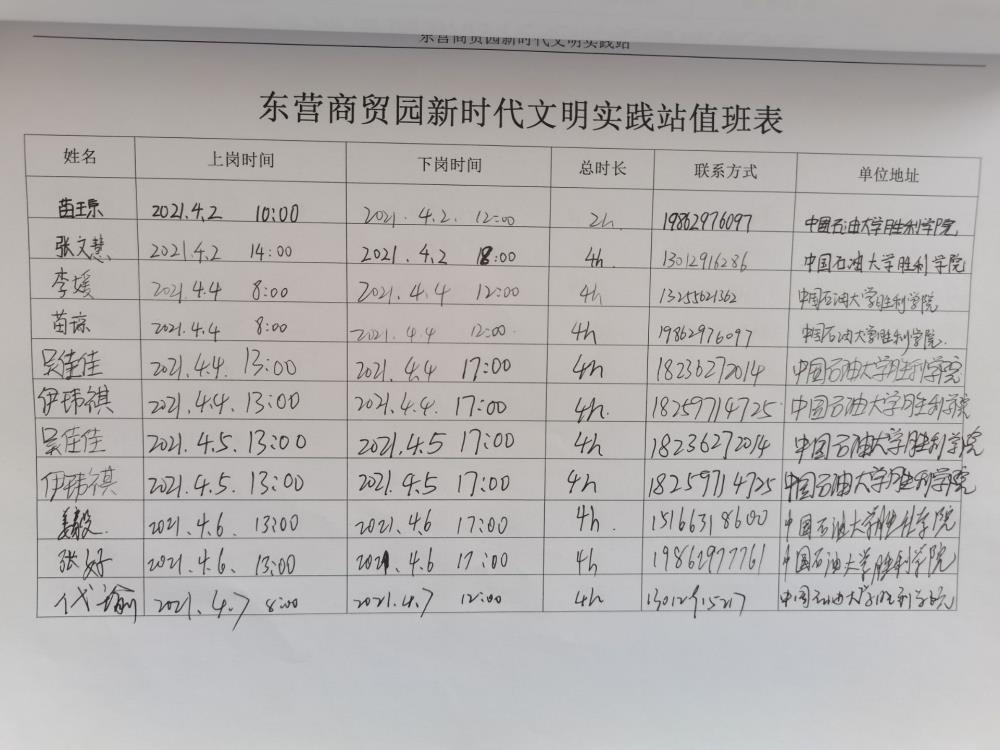 东营商贸园新时代文明实践站
东营商贸园新时代文明实践站值班表
姓名 上岗时间 下岗时间 总时长 联系方式 单位地址
苗琼 2021.4.2 10:00 2021.4.2. 12:00 2h. 19862976097 中国石油大学胜利学院
张文慧 2021.4.2 14:00 2021.4.2 18:00 4h. 13012916286 中国石油大学胜利学院
李媛 2021.4.4 8:00 2021.4.4 12:00 4h 13255621362 中国石油大学胜利学院
苗琼 2021.4.4 8:00 2021.4.4 12:00. 4h 19862976097 中国石油大学胜利学院.
吴佳佳 2021.4.4. 13:00 2021.4.4 17:00 4h 18236272014 中国石油大学胜利学院
伊玮祺 2021.4.4. 13:00 2021.4.4. 17:00 4h. 18259714725 中国石油大学胜利学院
吴佳佳 2021.4.5. 13:00 2021.4.5 17:00 4h 18236272014 中国石油大学胜利学院
伊玮祺 2021.4.5. 13:00 2021.4.5 17:00 4h 18259714725 中国石油大学胜利学院
2021.4.6 13:00 2021.4.6 17:00 4h. 15166318600 中国石油大学胜利学院
张好 2021.4.6. 13:00 2021.4.6 17:00 4h 19862977761 中国石油大学胜利学院
代瑜 2021.4.7 8:00 2021.4.7 12:00 4h 13012915217 中国石油大学胜利学院